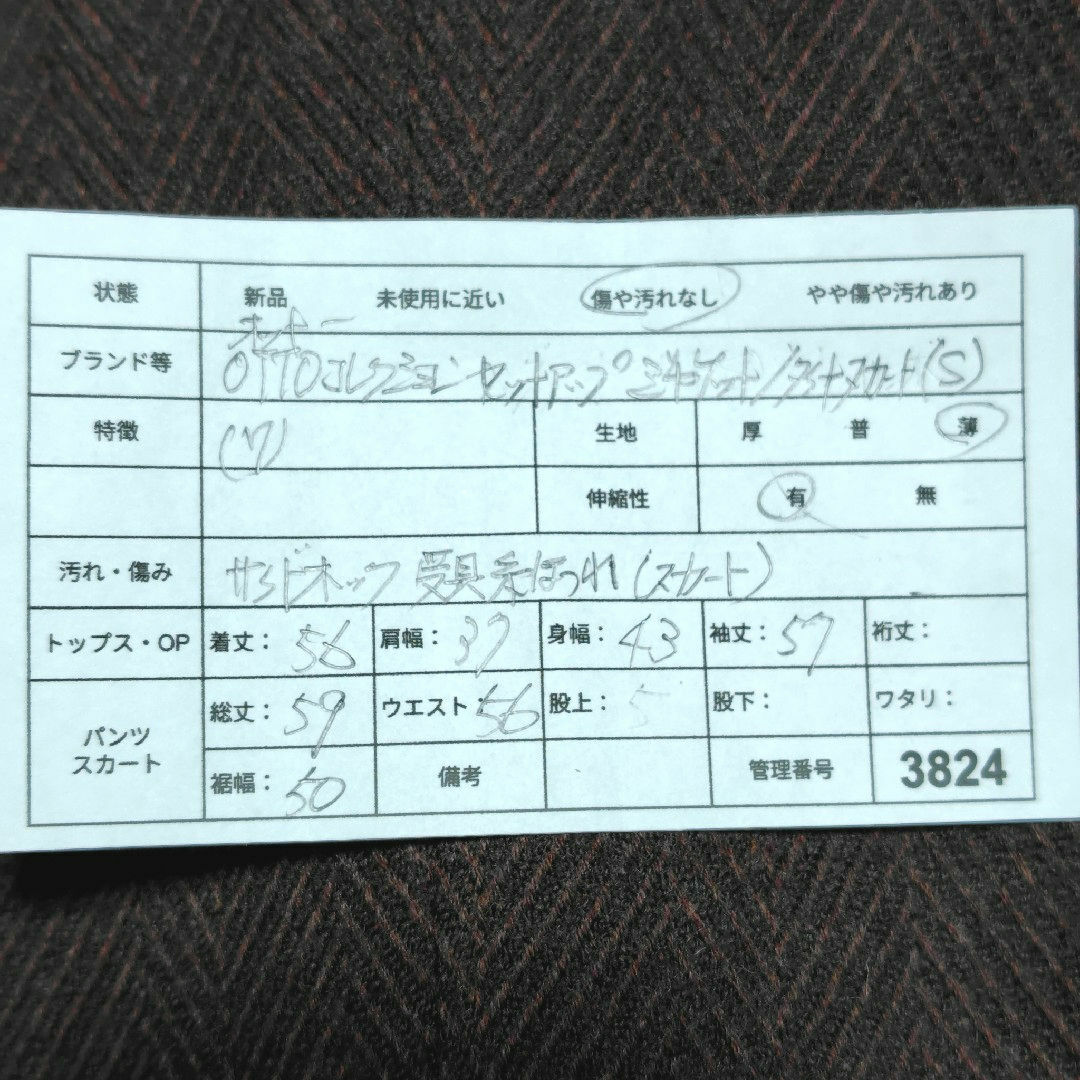 状態 新品 未使用に近い 傷や汚れなし やや傷や汚れあり
オットー
ブランド等 OTTOコレクション セットアップ ジャケット/タイトスカート(S)
特徴 (7) 生地 厚 普 薄
伸縮性 有 無
汚れ・傷み サイドホック 受具糸ほつれ(スカート)
トップス・OP 着丈: 56 肩幅: 37 身幅: 43 袖丈: 57 裄丈:
パンツ スカート 総丈: 59 ウエスト: 56 股上: 股下: ワタリ:
裾幅: 50 備考 管理番号 3824